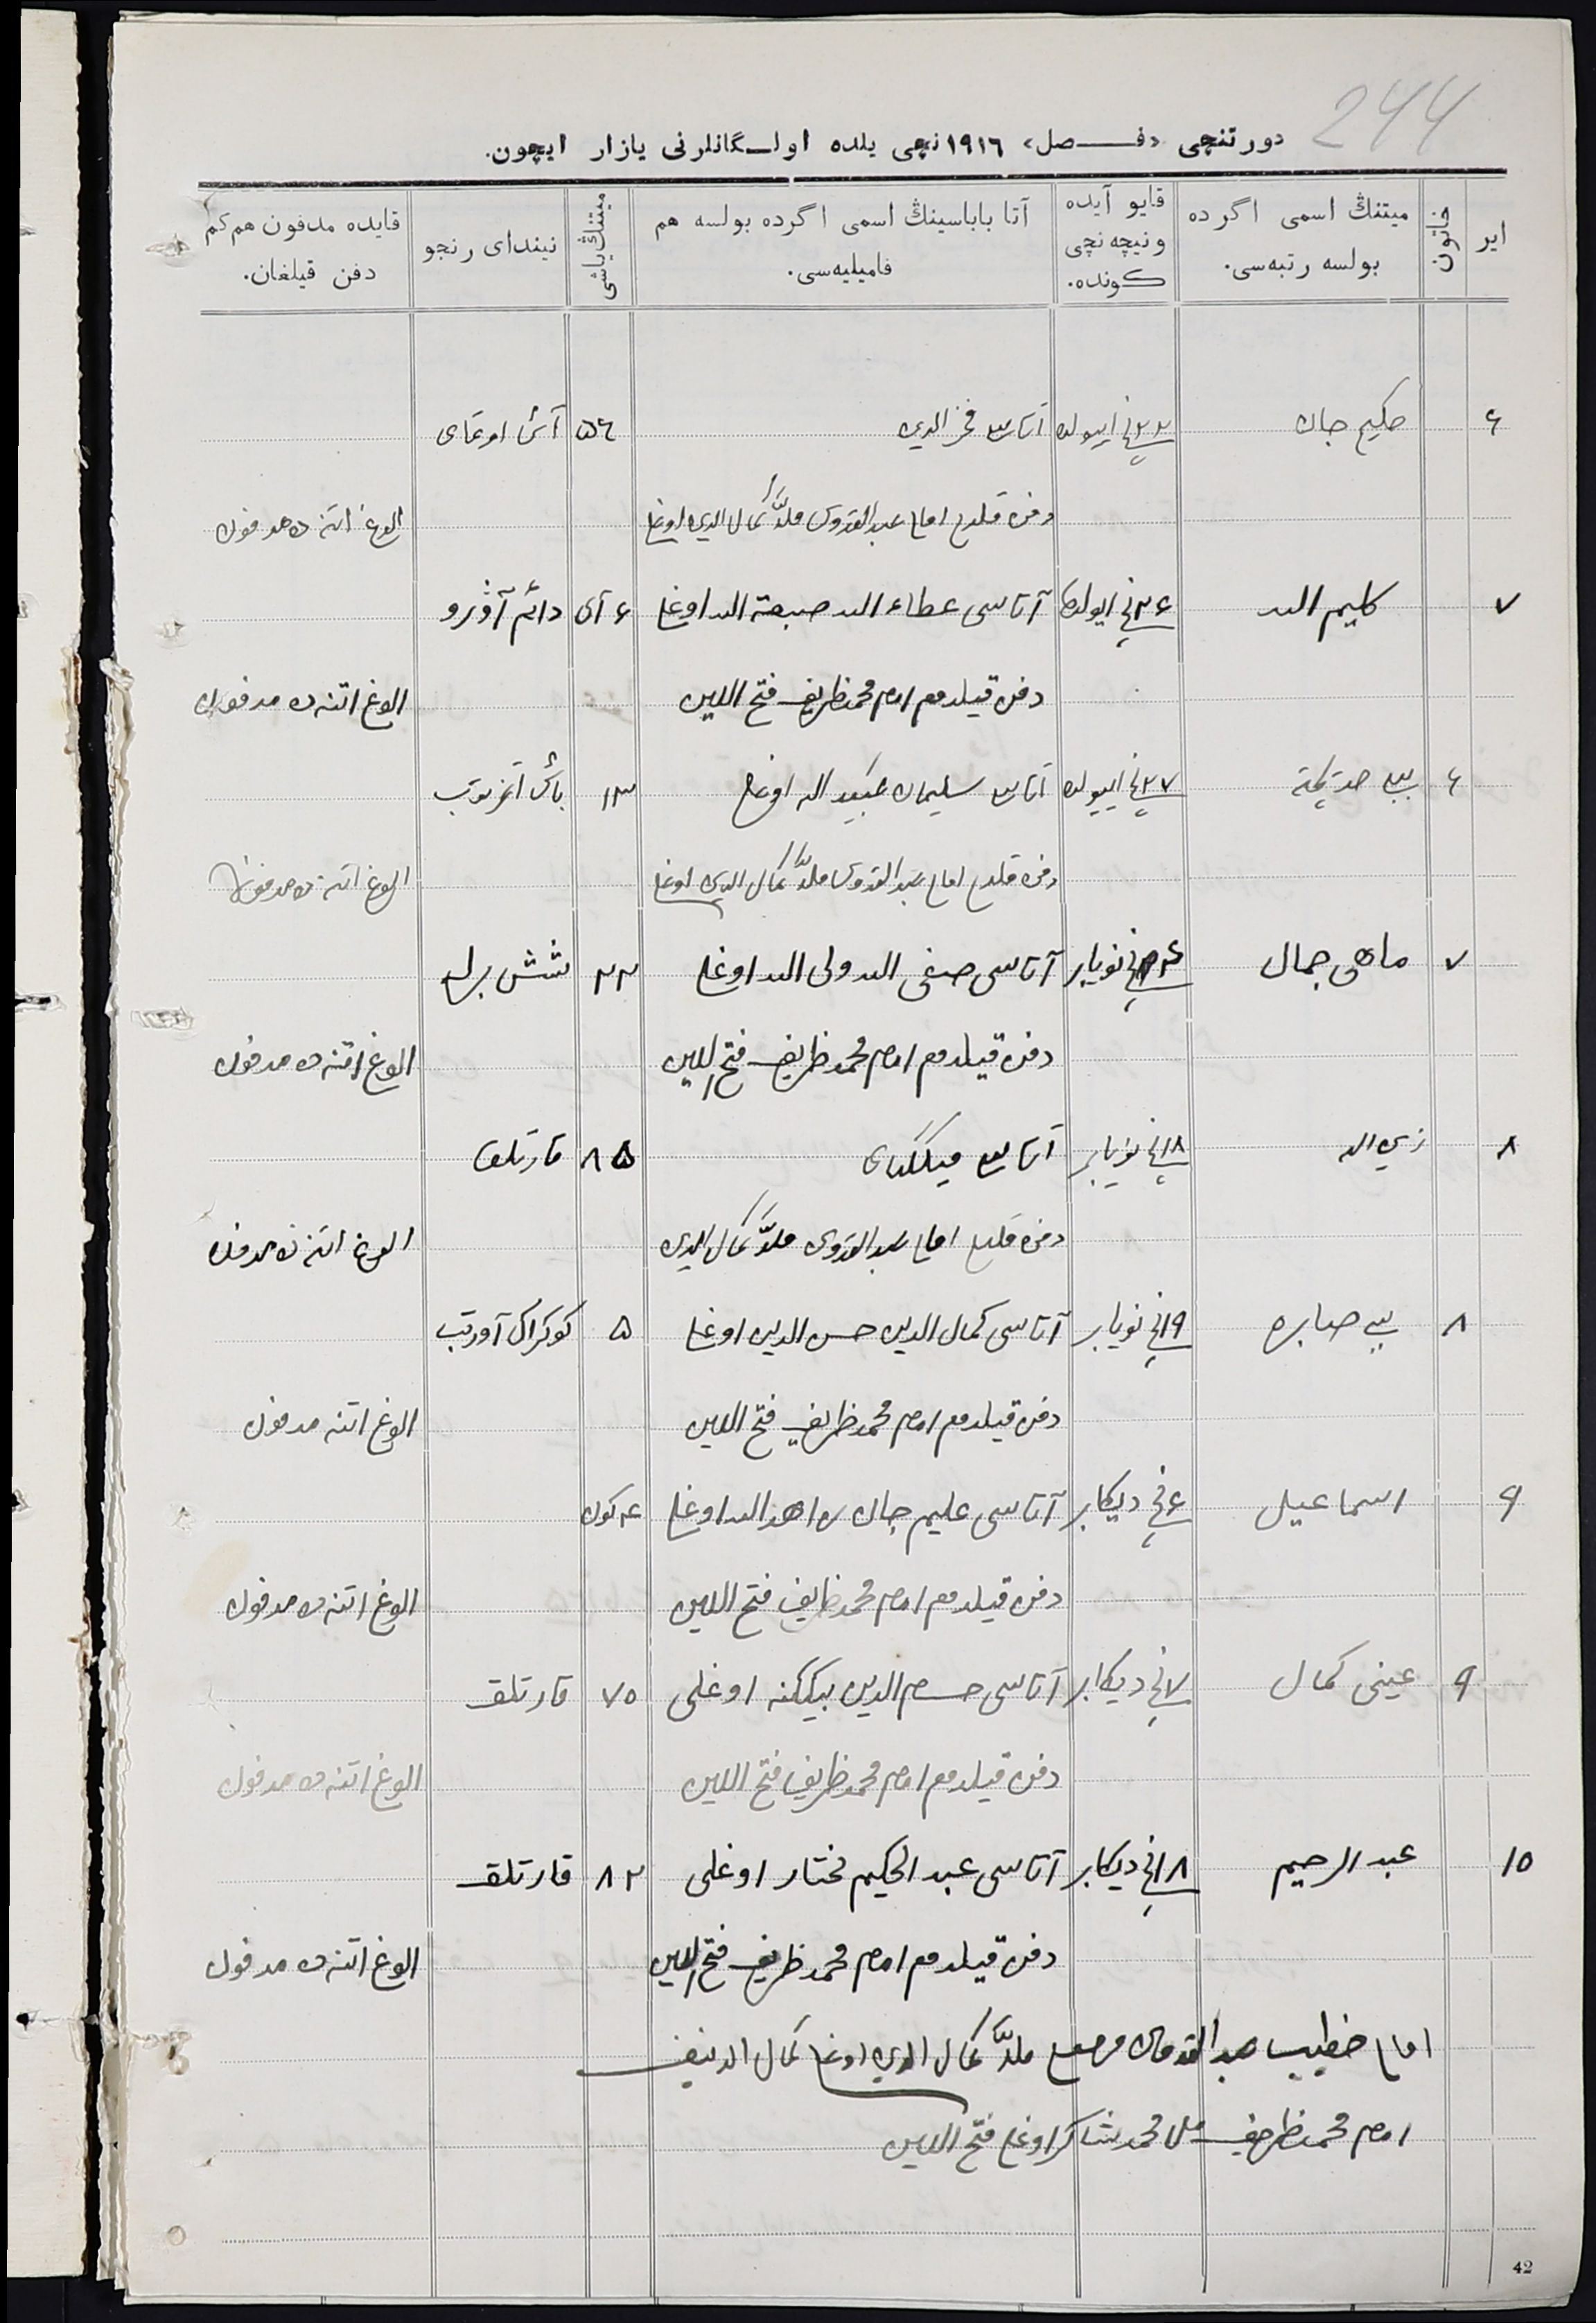 244
دورتنچی «فـصل» ١٩١٦ نچی یلده اولـگانلرنی یازار ایچون.
ایر
خاتون
میتنڭ اسمی اگرده بولسه رتبه‌سی.
قایو آیده ونیچه نچی کونده.
آتا باباسینڭ اسمی اگرده بولسه هم فامیلیه‌سی.
میتنڭ یاشی
نیندای رنجو
قایده مدفون هم کم دفن قیلغان.
۶ حکیم جان ۲۲نچی ایولده آتاسی فخرالدین ۵۶
دفن قلدم امام عبدالقدوس ملا کمال الدین اوغلی الوغ اتنه ده مدفون
۷ کلیم الله ۲۶نچی ایولده آتاسی عطاء الله صبغة الله اوغلی ۶ آی دائم آوْرو
دفن قیلدم امام محمدظریف فتح الدین الوغ اتنه ده مدفون
۶ بیبی خدیجة ۲۷نچی ایولده آتاسی سلیمان عبیدالله اوغلی ۱۳
دفن قلدم امام عبدالقدوس ملا کمال الدین اوغلی الوغ اتنه ده مدفون
۷ ماهی جمال نویابر آتاسی صفی الله ولی الله اوغلی ۲۲
دفن قیلدم امام محمد ظریف فتح الدین الوغ اتنه ده مدفون
۸ ۱۸نچی نویابر آتاسی ۸۵ قارتلق
دفن قلدم امام عبدالقدوس ملا کمال الدین الوغ اتنه ده مدفون
۸ بیبی صابره ۱۹نچی نویابر آتاسی کمال الدین حسن الدین اوغلی ۵ کوکراک آورتب
دفن قیلدم امام محمد ظریف فتح الدین الوغ اتنه مدفون
۹ اسماعیل ۶نچی دیکابر آتاسی علیم جان اوغلی کون
دفن قیلدم امام محمد ظریف فتح الدین الوغ اتنه ده مدفون
۹ عینی کمال ۷نچی دیکابر آتاسی حسام الدین بیککنه اوغلی ۷۵ قارتلق
دفن قیلدم امام محمد ظریف فتح الدین الوغ اتنه ده مدفون
۱۰ عبدالرحیم ۱۸نچی دیکابر آتاسی عبدالحکیم مختار اوغلی ۸۲ قارتلق
دفن قیلدم امام محمد ظریف فتح الدین الوغ اتنه ده مدفون
امام خطیب عبدالقدوس ملا کمال الدین اوغلی کمال الدینف
امام محمدظریف ملا محمدشاکر اوغلی فتح الدین
42